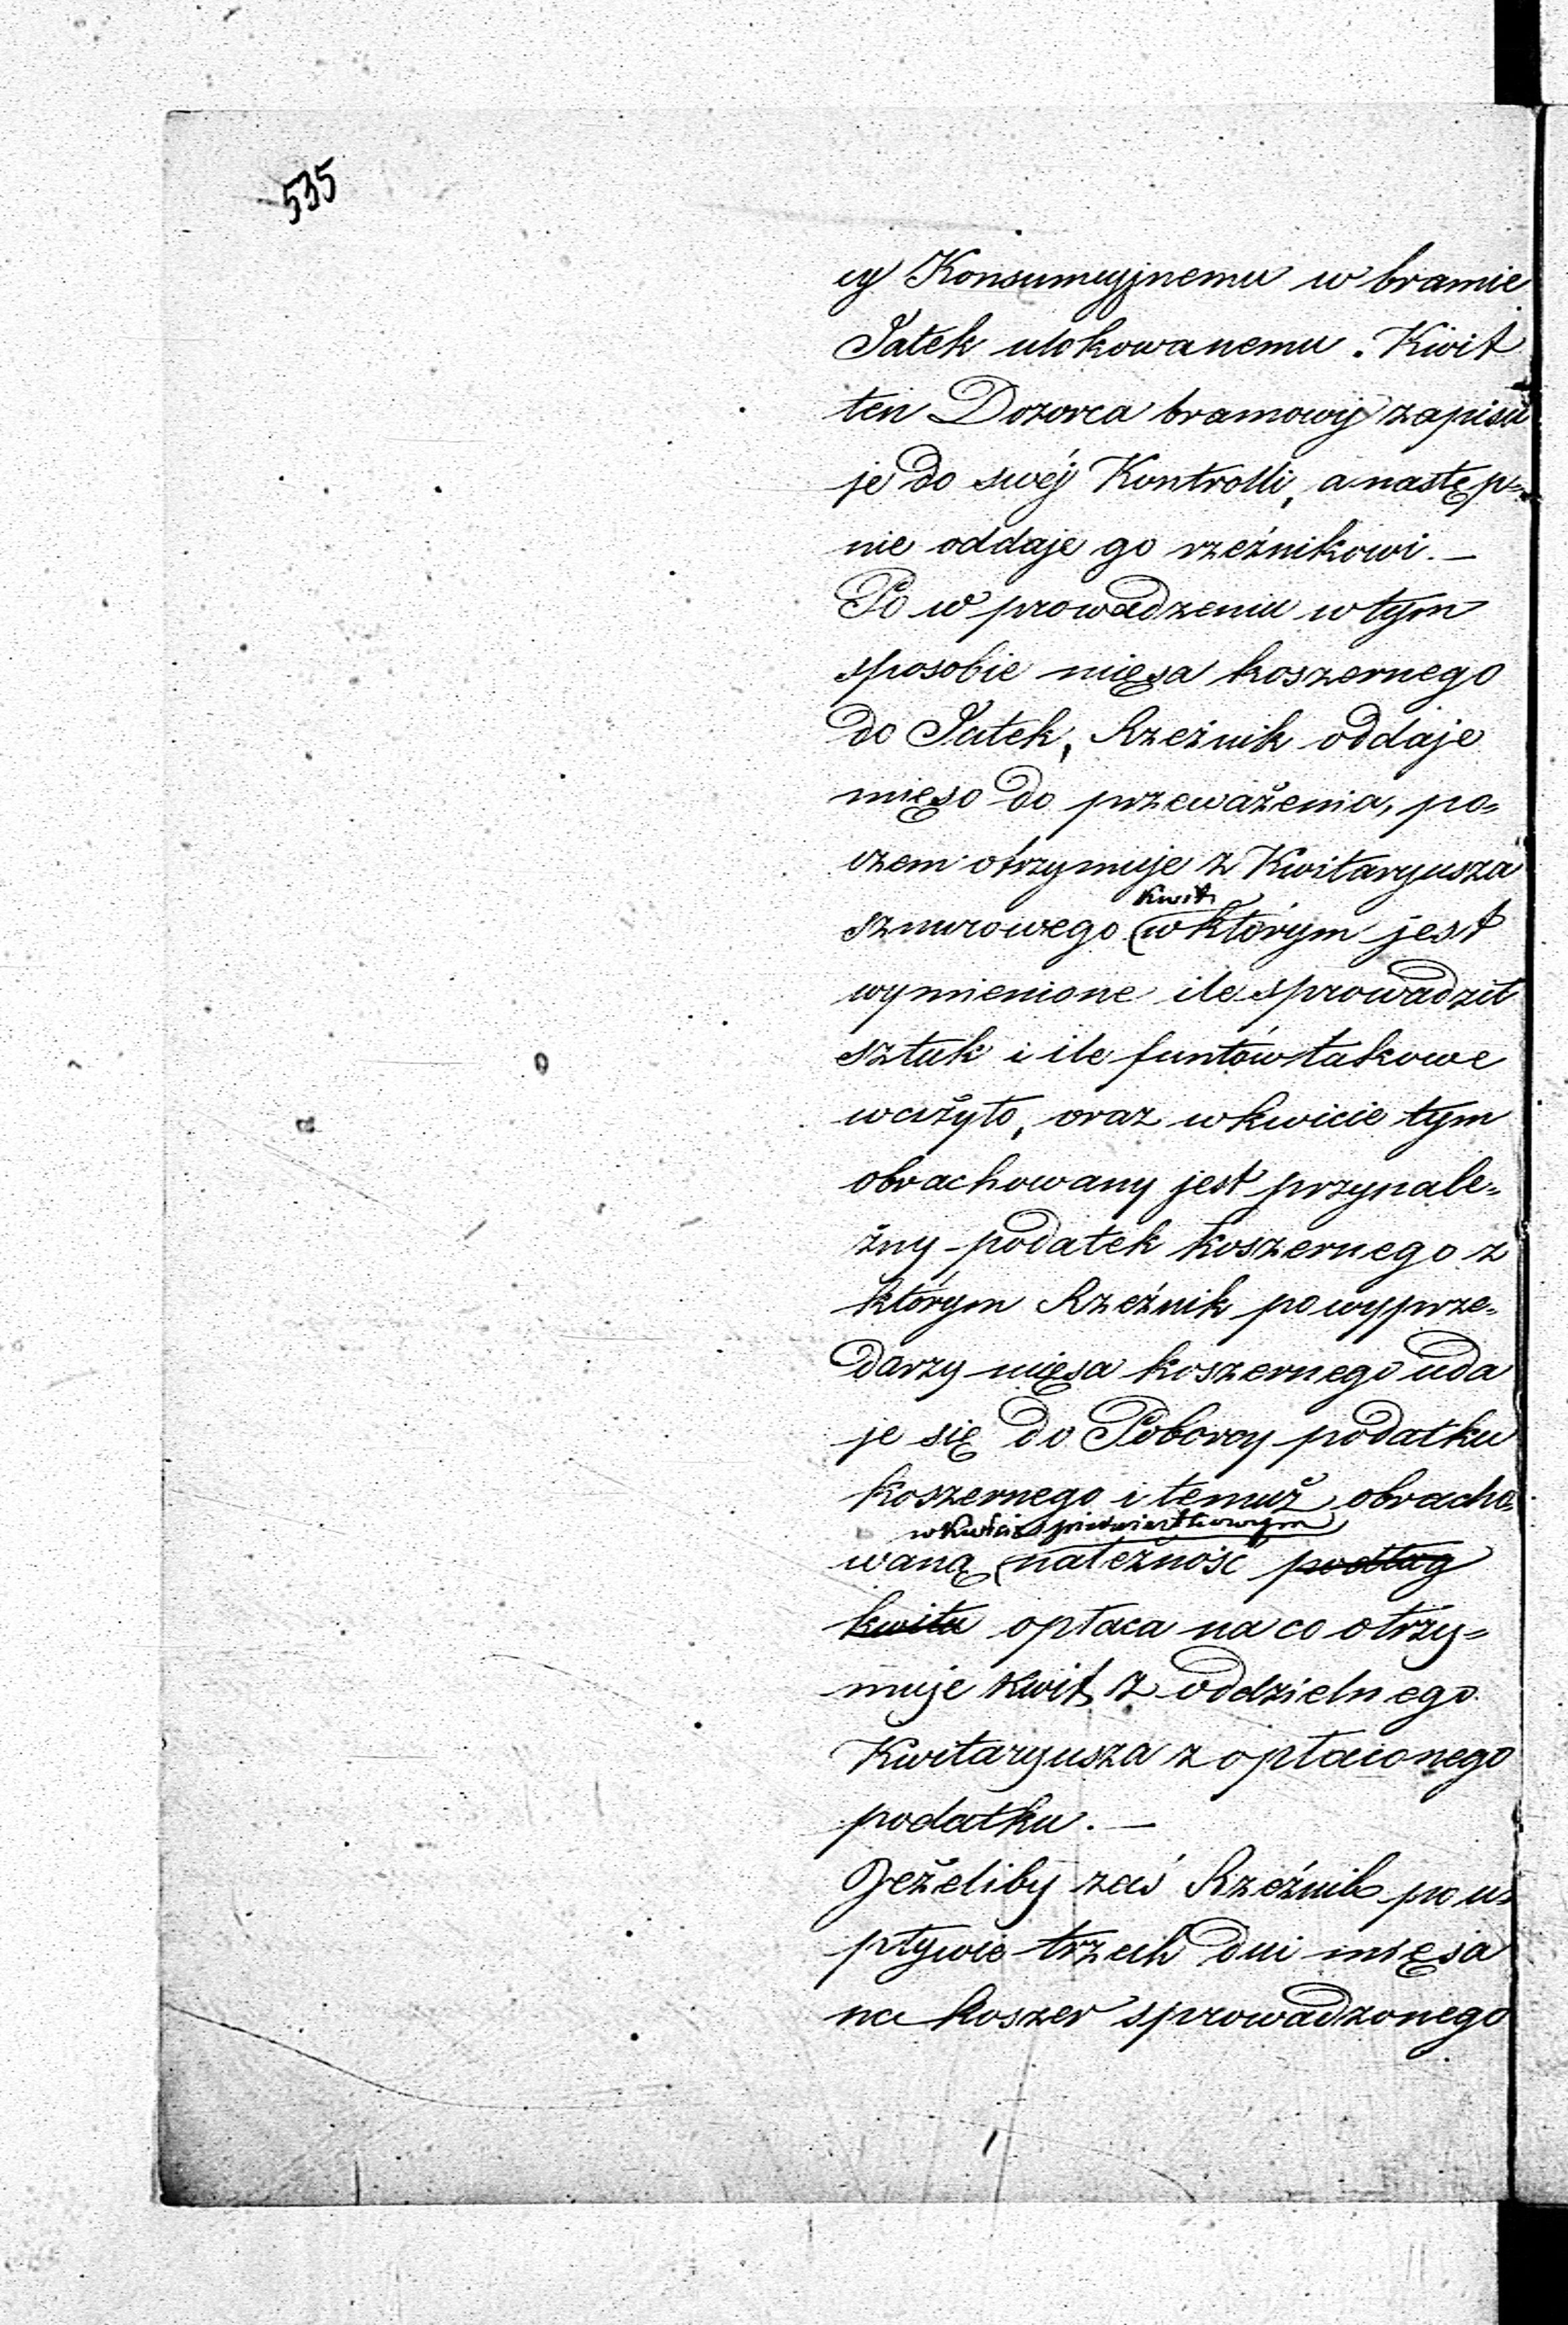 535
cy Konsumcyjnemu w bramie
Jatek ulokowanemu. Kwit
ten Dozorca bramowy zapisu
je do swéj Kontrolli, a następ=
nie oddaje go rzeźnikowi. —
Po w prowadzeniu w tym
sposobie mięsa koszernego
do Jatek, Rzeźnik oddaje
mięso do przeważenia, po=
czem otrzymuje z Kwitaryusza
kwit
sznurowego w którym jest
wymienione ile sprowadził
sztuk i ile funtów takowe
ważyło, oraz w kwicie tym
obrachowany jest przynale=
żny podatek koszernego z
którym Rzeźnik po wyprze=
darzy mięsa koszernego uda
je się do Poborcy podatku
koszernego i temuż obracho=
w kwicie pierwiastkowym
waną należność podług
kwitu opłaca na co otrzy=
muje kwit z oddzielnego
Kwitaryusza z opłaconego
podatku. —
Jeżeliby zaś Rzeźnik po u=
pływie trzech dni mięsa
na koszer sprowadzonego